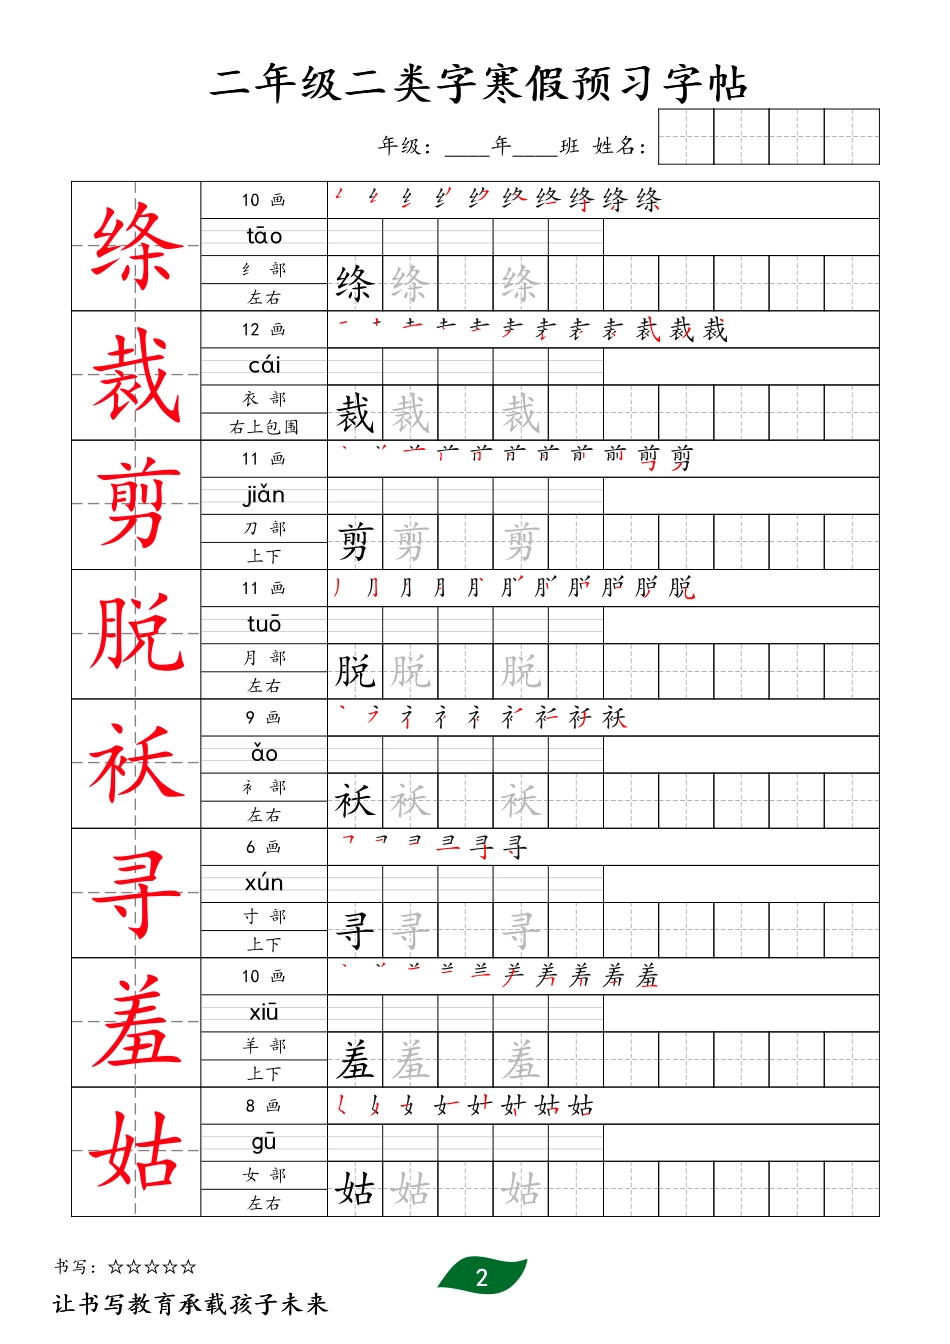 二年级二类字寒假预习字帖
年级：____年____班 姓名：
绦
10 画
tāo
纟 部
左右
绦 绦 绦
裁
12 画
cái
衣 部
右上包围
裁 裁 裁
剪
11 画
jiǎn
刀 部
上下
剪 剪 剪
脱
11 画
tuō
月 部
左右
脱 脱 脱
袄
9 画
ǎo
衤 部
左右
袄 袄 袄
寻
6 画
xún
寸 部
上下
寻 寻 寻
羞
10 画
xiū
羊 部
上下
羞 羞 羞
姑
8 画
gū
女 部
左右
姑 姑 姑
书写：☆☆☆☆☆
2
让书写教育承载孩子未来